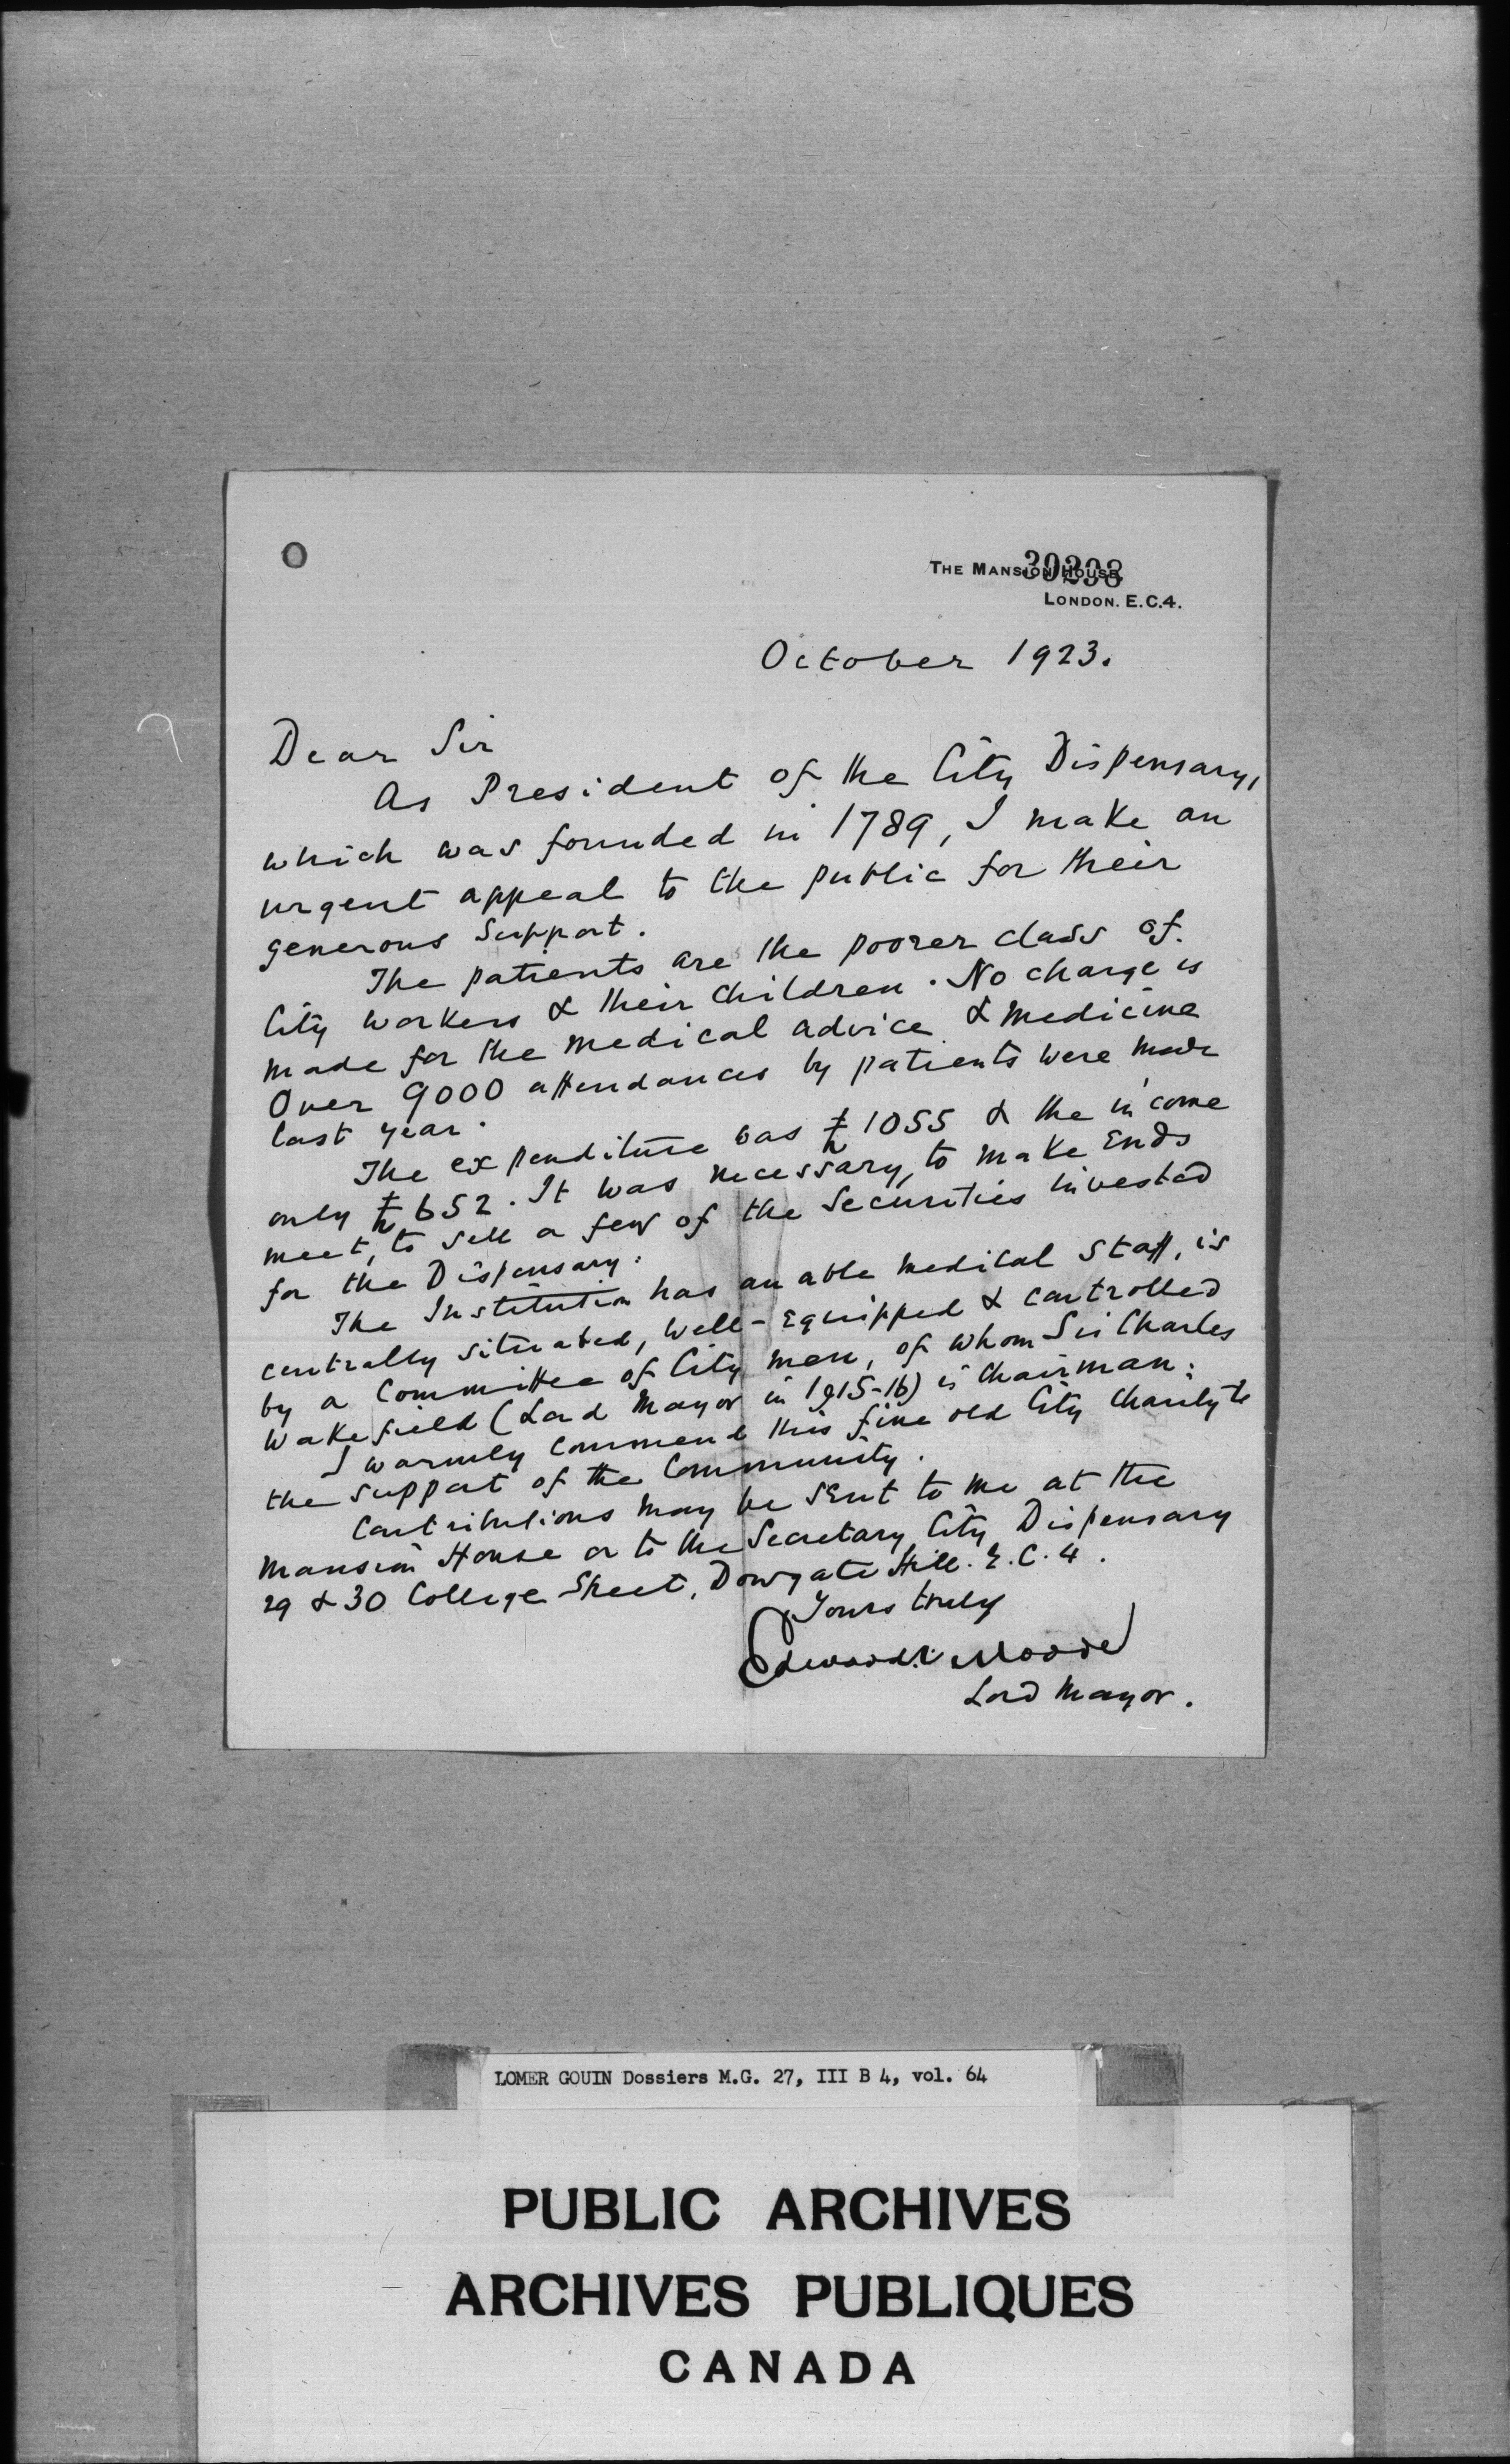 O
30298
THE MANSION HOUSE,
LONDON. E.C.4.
October 1923.
Dear Sir
As President of the City Dispensary,
which was founded in 1789, I make an
urgent appeal to the public for their
generous support.
The patients are the poorer class of
City workers & their children. No charge is
made for the medical advice & medicine
Over 9000 attendances by patients were made
last year.
The expenditure was £1055 & the income
only £652. It was necessary, to make ends
meet, to sell a few of the securities invested
for the Dispensary.
The Institution has an able medical staff, is
centrally situated, well-equipped & controlled
by a Committee of City men, of whom Sir Charles
Wakefield (Lord Mayor in 1915-16) is Chairman.
I warmly commend this fine old City Charity to
the support of the Community.
Contributions may be sent to me at the
Mansion House or to the Secretary City Dispensary
29 & 30 College Street, Dowgate Hill. E.C.4.
Yours truly
Edward C. Moore
Lord Mayor.
LOMER GOUIN Dossiers M.G. 27, III B 4, vol. 64
PUBLIC ARCHIVES
ARCHIVES PUBLIQUES
CANADA